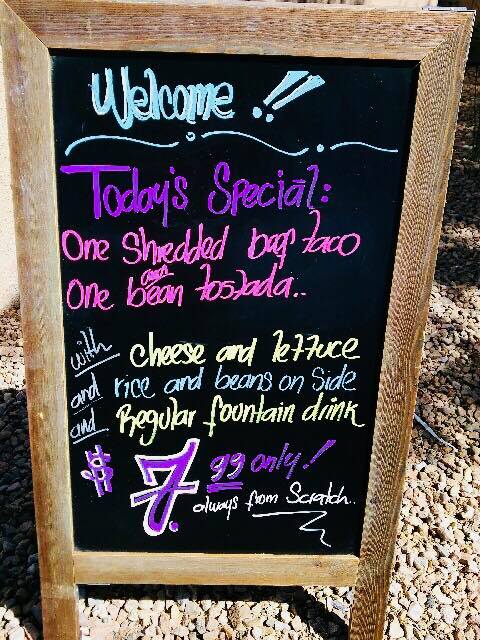 Welcome !!
Today's Special:
One Shredded beef taco
One bean tostada..
with cheese and lettuce
and rice and beans on side
and Regular fountain drink
$7.99 only!
always from Scratch..